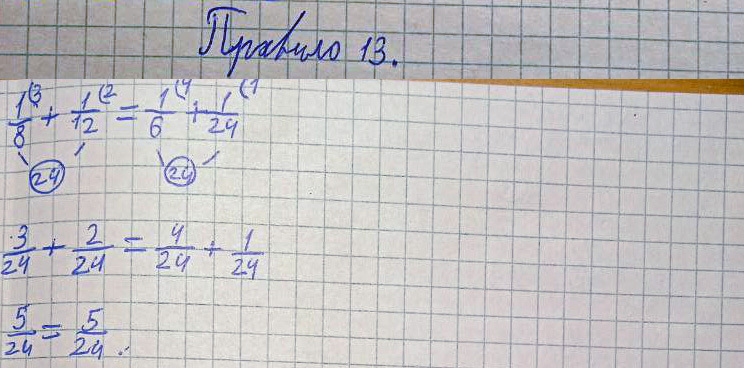 Правило 13.
1(3/8 + 1(2/12 = 1(4/6 + 1(1/24
24 24
3/24 + 2/24 = 4/24 + 1/24
5/24 = 5/24.